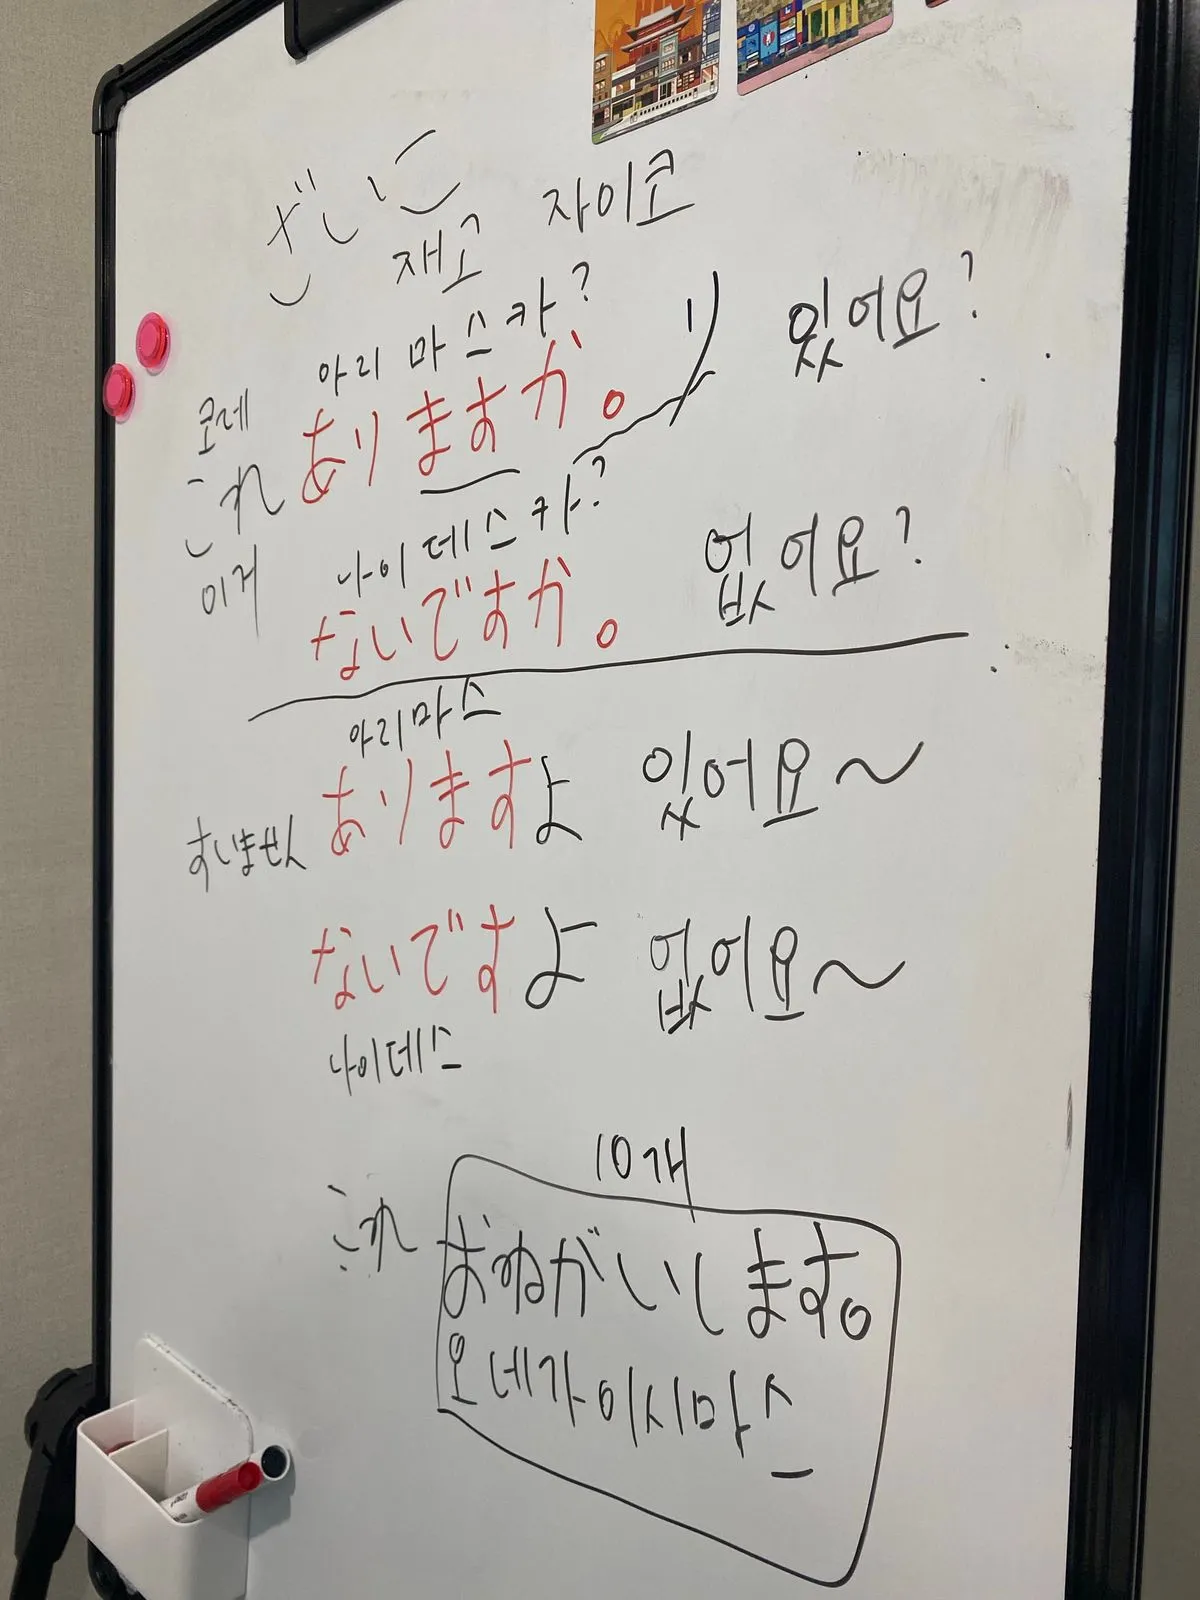 ざいこ
재고 자이코
아리마스카?
코레
これ ありますか。 있어요?
이거
나이데스카?
ないですか。 없어요?
아리마스
すいません ありますよ 있어요~
ないですよ 없어요~
나이데스
10개
これ おねがいします。
오네가이시마스